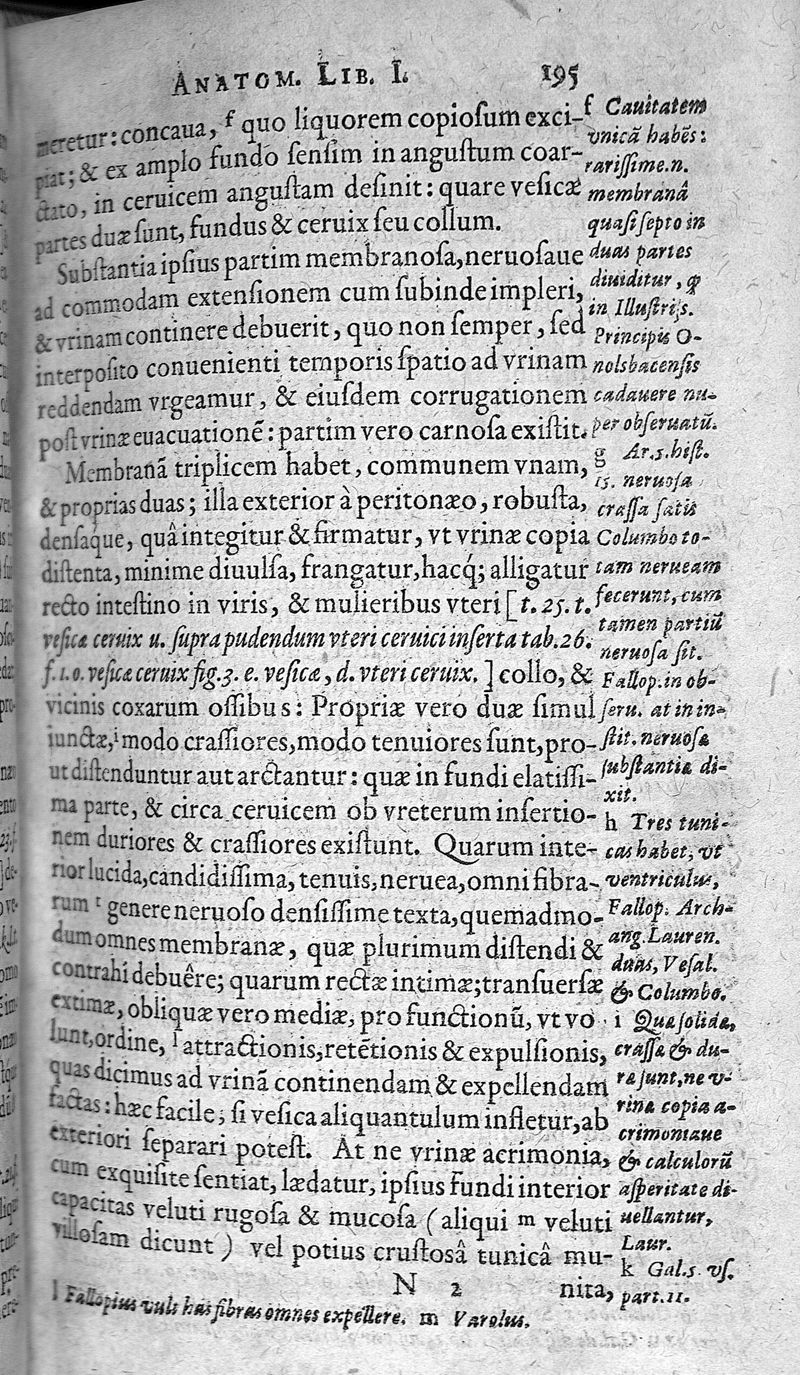 ANATOM. LIB. I. 195
meretur: concaua, f quo liquorem copiosum exci-
piat; & ex amplo fundo sensim in angustum coar-
ctato, in ceruicem angustam desinit: quare vesicæ
partes duæ sunt, fundus & ceruix seu collum.
Substantia ipsius partim membranosa, neruosaue
ad commodam extensionem cum subinde impleri,
& vrinam continere debuerit, quo non semper, sed
interposito conuenienti temporis spatio ad vrinam
reddendam vrgeamur, & eiusdem corrugationem
post vrinæ euacuationē: partim vero carnosa existit.
Membranā triplicem habet, communem vnam, g
& proprias duas; illa exterior à peritonæo, robusta,
densaque, quâ integitur & firmatur, vt vrinæ copia
distenta, minime diuulsa, frangatur, hacq́; alligatur
recto intestino in viris, & mulieribus vteri [t. 25. t.
vesicæ ceruix u. supra pudendum vteri ceruici inserta tab. 26.
f. 1. o. vesicæ ceruix fig. 3. e. vesicæ, d. vteri ceruix.] collo, &
vicinis coxarum ossibus: Propriæ vero duæ simul
iunctæ, i modo crassiores, modo tenuiores sunt, pro-
ut distenduntur aut arctantur: quæ in fundi elatissi-
ma parte, & circa ceruicem ob vreterum insertio-
nem duriores & crassiores existunt. Quarum inte-
rior lucida, candidissima, tenuis, neruea, omni fibra-
rum genere neruoso densissime texta, quemadmo-
dum omnes membranæ, quæ plurimum distendi &
contrahi debuêre; quarum rectæ intimæ; transuersæ
extimæ, obliquæ vero mediæ, pro functionū, vt vo
lunt, ordine, l attractionis, retētionis & expulsionis,
quas dicimus ad vrinā continendam & expellendam
factas: hæc facile, si vesica aliquantulum infletur, ab
exteriori separari potest. At ne vrinæ acrimonia,
cum exquisite sentiat, lædatur, ipsius fundi interior
capacitas veluti rugosa & mucosa (aliqui m veluti
villosam dicunt) vel potius crustosâ tunicâ mu-
N 2 nita,
f Cauitatem
vnicā habēs:
rarissime.n.
membranâ
quasi septo in
duas partes
diuiditur,
in Illustris.
Principis O-
nolsbacensis
cadauere nu-
per obseruatū.
g Ar.3.hist.
15. neruosa
crassa satis
Columbo to-
tam nerueam
fecerunt, cum
tamen partiū
neruosa sit.
Fallop. in ob-
seru. at in in-
stit. neruosæ
substantiæ di-
xit.
h Tres tuni-
cas habet, vt
ventriculus,
Fallop. Arch-
ang. Lauren.
duas, Vesal.
& Columbo.
i Quæ solidæ,
crassæ & du-
ræ sunt, ne v-
rinæ copia a-
crimoniaue
& calculorū
asperitate di-
uellantur,
Laur.
k Gal.5. vs.
part. 11.
l Fallopius vult has fibras omnes expellere. m Varolus.